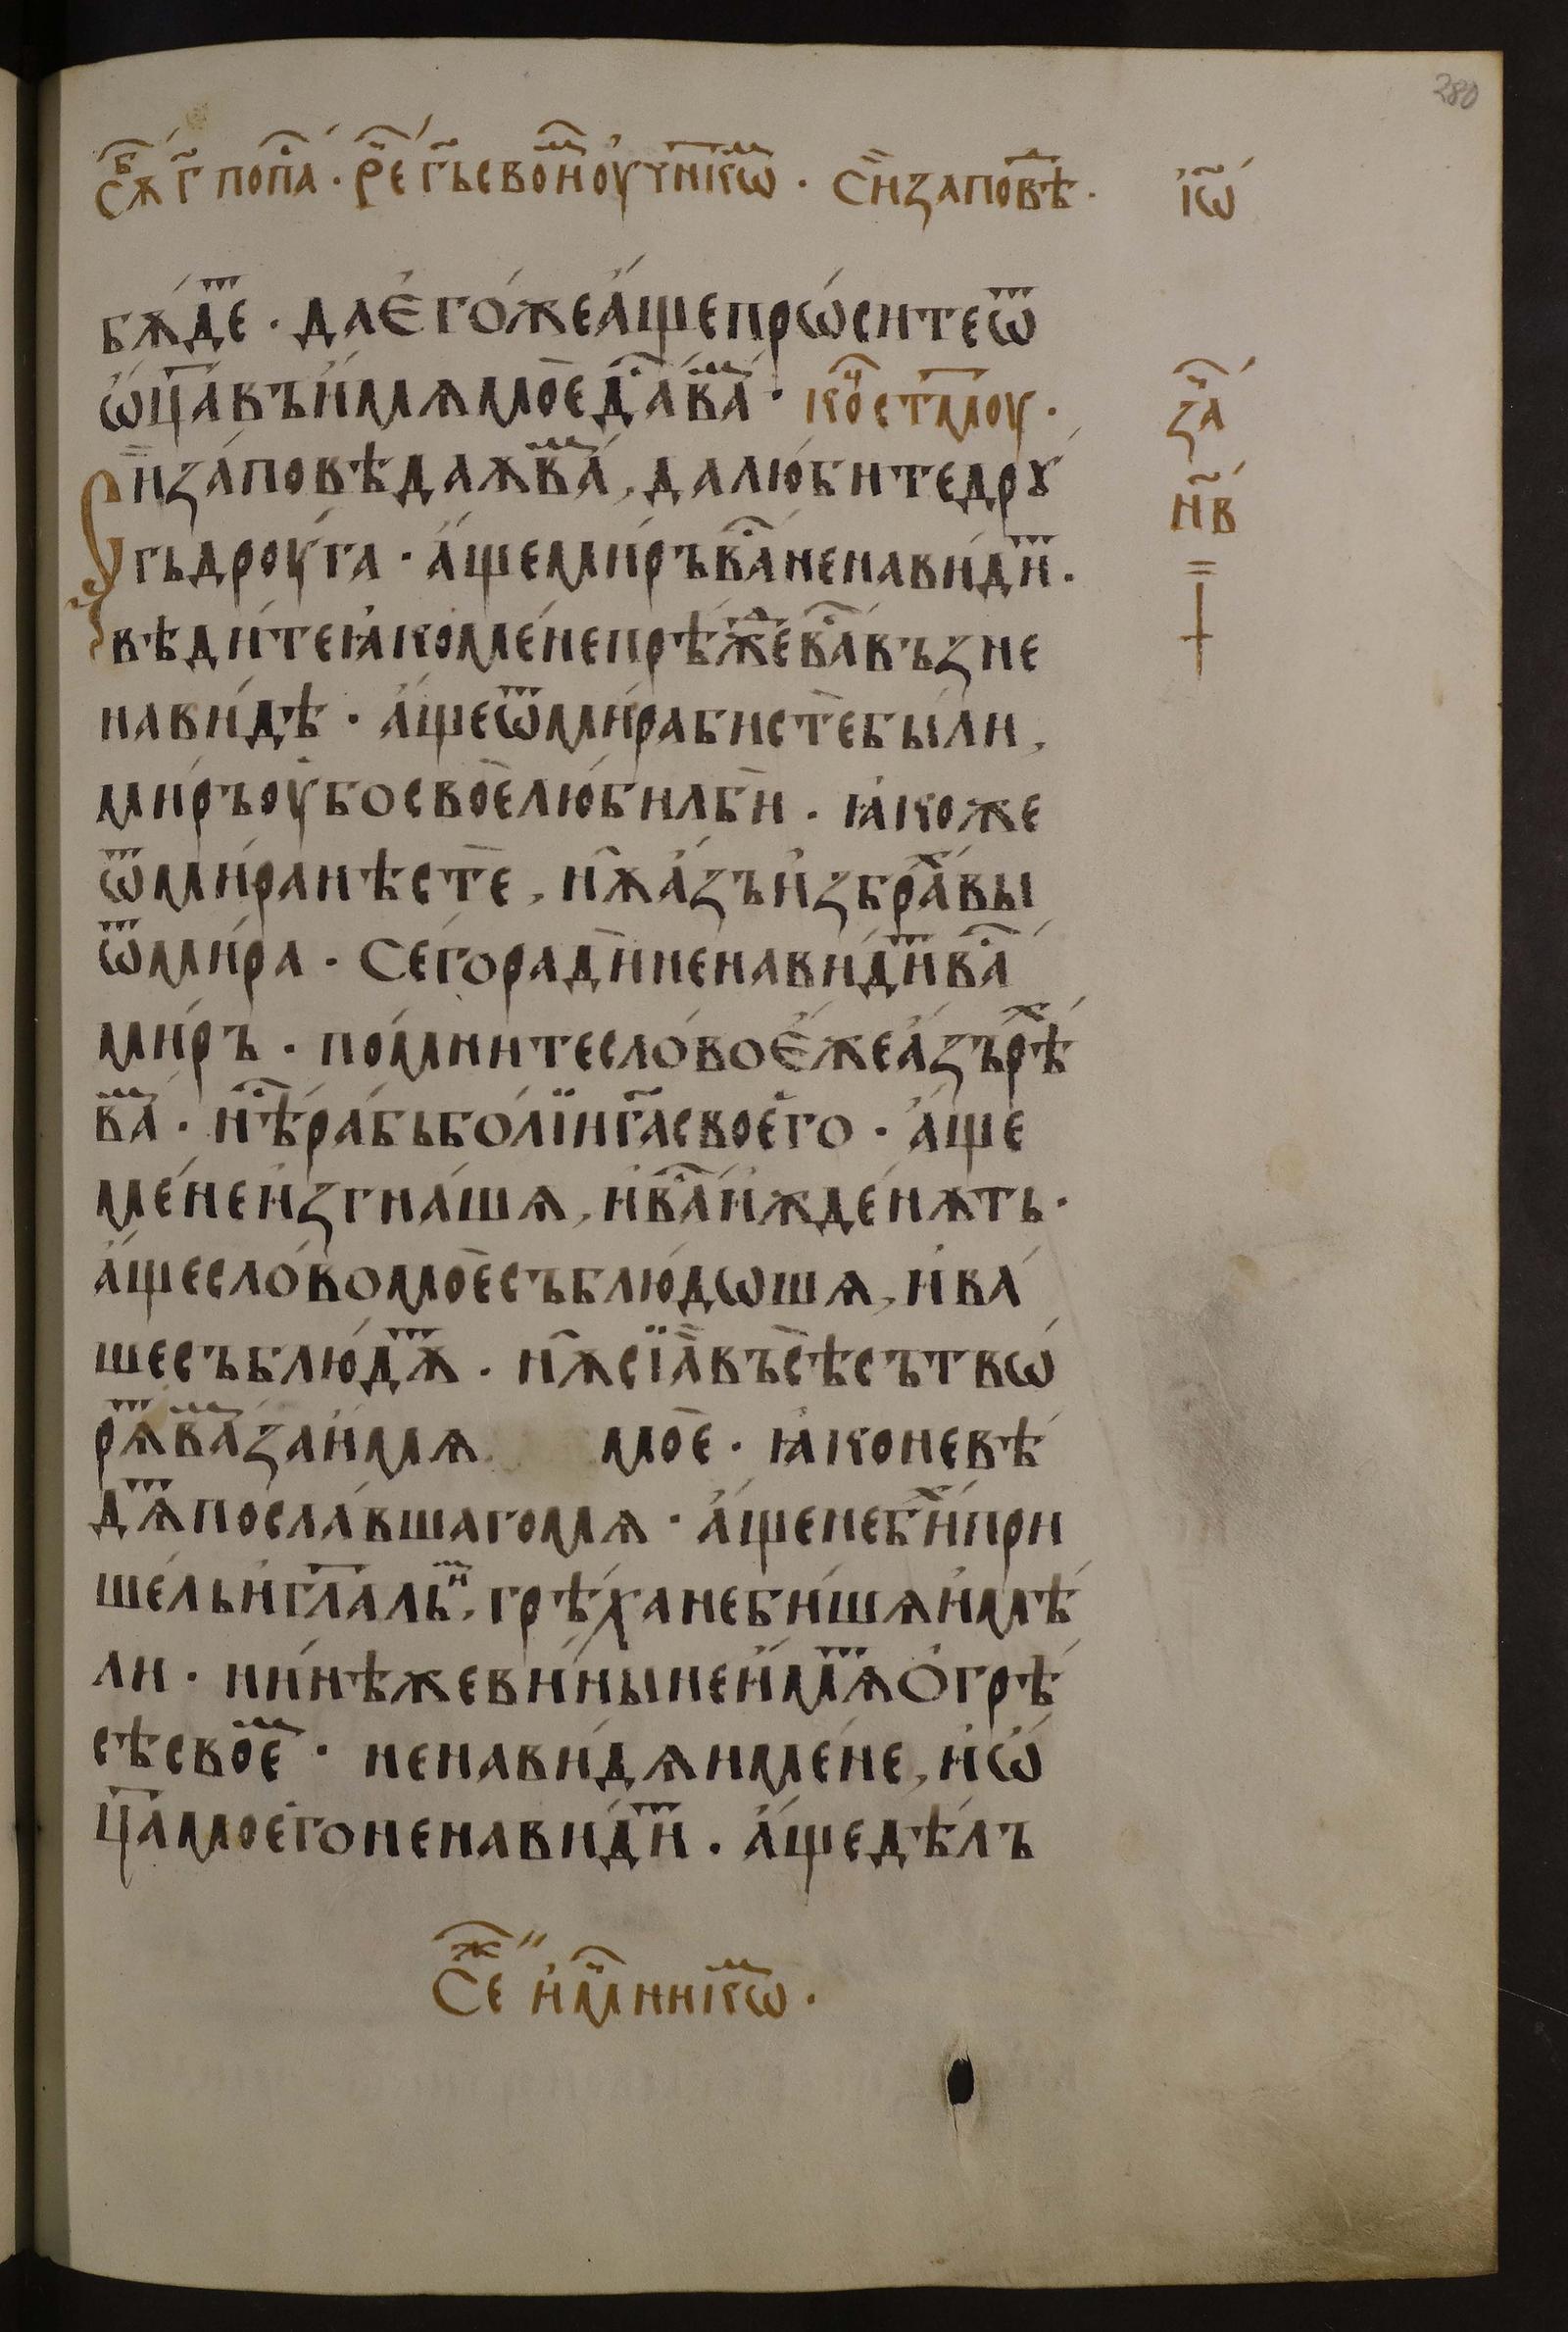 280
сѫⷠ҇ г҃ попⷭ҇а · рⷱ҇е г҃ь своиⷨ оучн҃кѡⷨ · си заповⷣѣ · іѡ҃
бѫдеⷮ · да єгоже аще прѡсите ѿ
ѡц҃а въ имѧ мое дⷭ҇а ваⷨ · коⷩ҇ ст҃моу · заⷱ҇
Си заповѣдаѫ ваⷨ, да любите дрꙋ н҃в
гь дроуга · аще миръ ваⷭ҇ ненавидиⷮ ·
вѣдите ꙗко мене прѣжⷣе ваⷭ҇ възне
навидѣ · аще ѿ мира бисте были,
миръ оубо свое любил би · ꙗкоже
ѿ мира нѣсте, нѫ азъ избраⷯ вы
ѿ мира · Сего ради ненавидиⷮ ваⷭ҇
миръ · помните слово єже азъ рѣⷯ
ваⷨ · нⷭ҇ѣ рабь болїи г҃а своего · аще
мене изгнашѧ, и ваⷭ҇ ижденѫть ·
аще слово мое съблюдѡшѧ, и ва
ше съблюдѫⷮ · нѫ сїа въсѣ сътвѡ
рѧⷮ ваⷨ за имѧ мое · ꙗко не вѣ
дѧⷮ пославшаго мѧ · аще не биⷯ при
шель и гл҃аль иⷨ, грѣха не бишѧ имѣ
ли · нинѣ же вини не имѫⷮ о грѣ
сѣ своеⷨ · ненавидѧи мене, и ѡ
ц҃а моего ненавидиⷮ · аще дѣлъ
Сеⷤ имⷱ҇нникѡⷨ ·